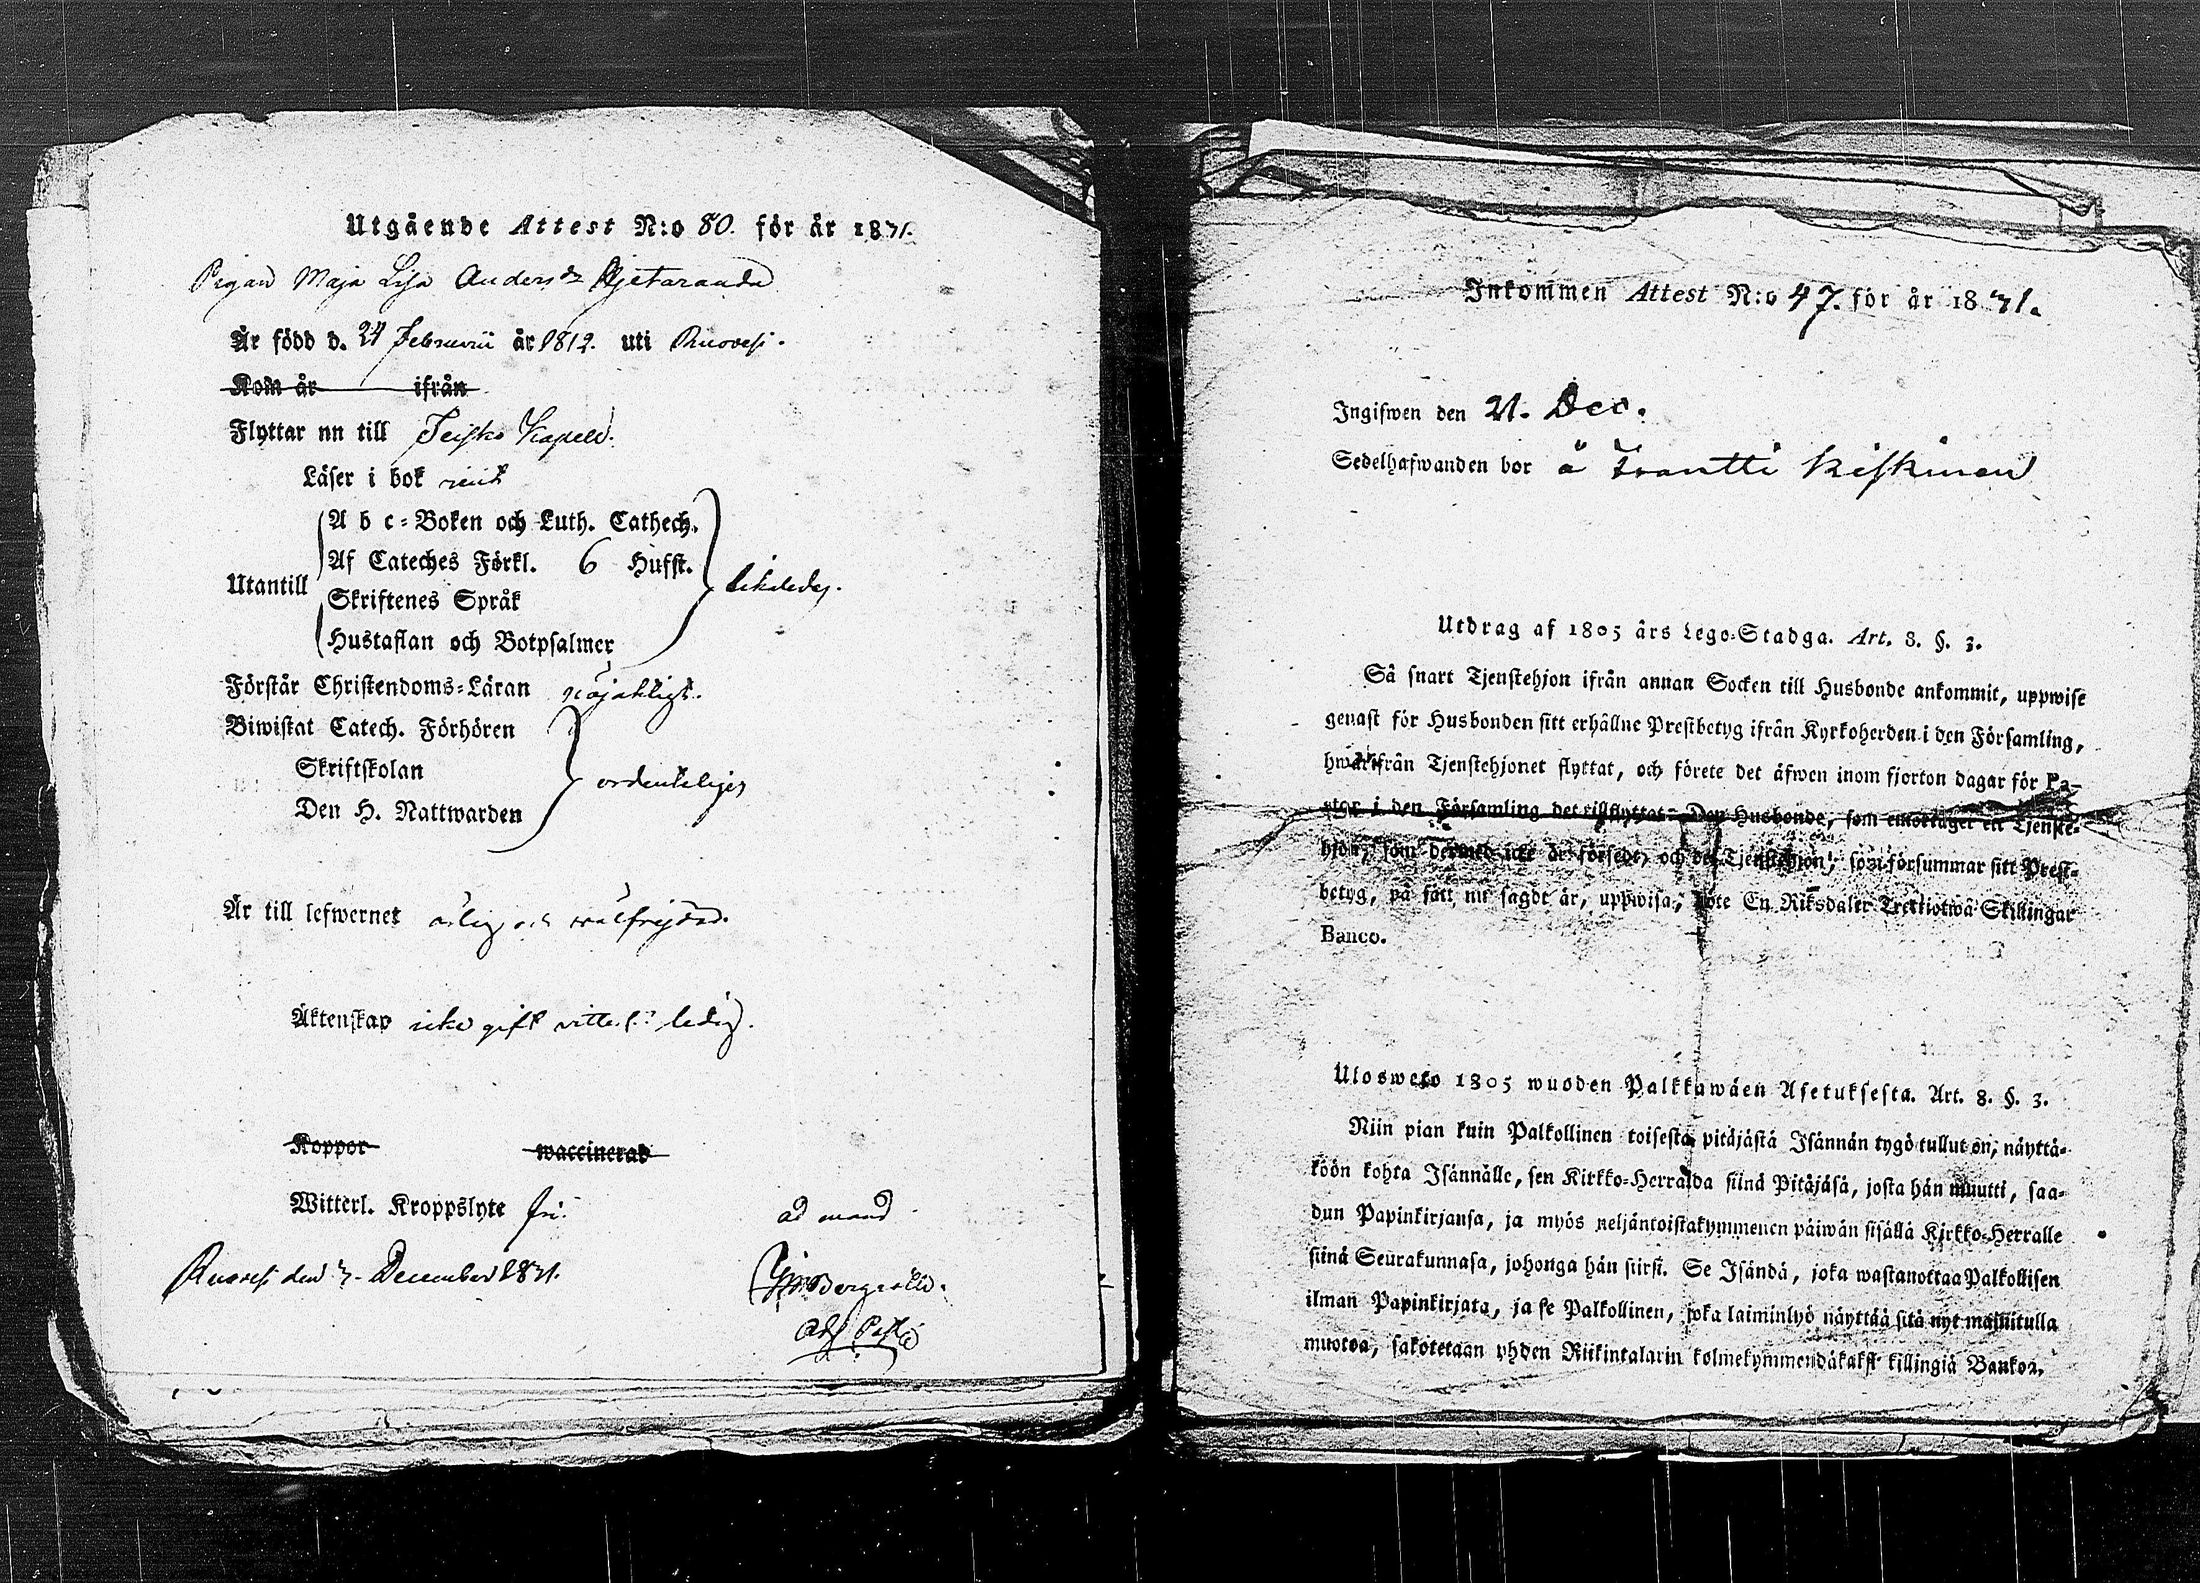 Utgående Attest N:o 80. för år 1831.
Pigan Maja Lisa Andersdr
Är född d. 24 Februarii år 1812. uti Ruovesi.
Kom år ifrån
Flyttar nu till Teisko Kapell.
Läser i bok rent
A b c-Boken och Luth. Cathech.
Af Cateches Förkl. 6 Hufst.
Utantill likaledes.
Skriftenes Språk
Hustaflan och Botpsalmer
Förstår Christendoms-Läran nöjaktligt.
Biwistat Catech. Förhören
Skriftskolan
ordenteligen
Den H. Nattwarden
Är till lefwernet ärlig och wälfrejdad.
Äktenskap icke gift ledig.
Koppor waccinerad
Witterl. Kroppslyte fri.
ad mand
Ruovesi den 7. December 1831.
Adj. Past.
Inkommen Attest N:o 47. för år 1831.
Ingifwen den 21. Dec.
Sedelhafwanden bor å Frantti Kiskinen
Utdrag af 1805 års Lego-Stadga. Art. 8. §. 3.
Så snart Tjenstehjon ifrån annan Socken till Husbonde ankommit, uppwise
genast för Husbonden sitt erhållne Prestbetyg ifrån Kyrkoherden i den Församling,
hwarifrån Tjenstehjonet flyttat, och förete det äfwen inom fjorton dagar för Pa-
stor i den Församling det tillflyttat. Den Husbonde, som emottager ett Tjenste-
hjon, som dermed icke är försedt, och det Tjenstehjon, som försummar sitt Prest-
betyg, på sätt nu sagdt är, uppwisa, böte En Riksdaler Trettiotwå Skillingar
Banco.
Ulosweto 1805 wuoden Palkkawäen Asetuksesta. Art. 8. §. 3.
Niin pian kuin Palkollinen toisesta pitäjästä Isännän tygö tullut on, näyttä-
köön kohta Isännälle, sen Kirkko-Herralda siinä Pitäjäsä, josta hän muutti, saa-
dun Papinkirjansa, ja myös neljäntoistakymmenen päiwän sisällä Kirkko-Herralle
siinä Seurakunnasa, johonga hän siirsi. Se Isändä, joka wastanottaa Palkollisen
ilman Papinkirjata, ja se Palkollinen, joka laiminlyö näyttää sitä nyt mainitulla
muotoa, sakotetaan yhden Riikintalarin kolmekymmendäkaksi killingiä Bankoa.